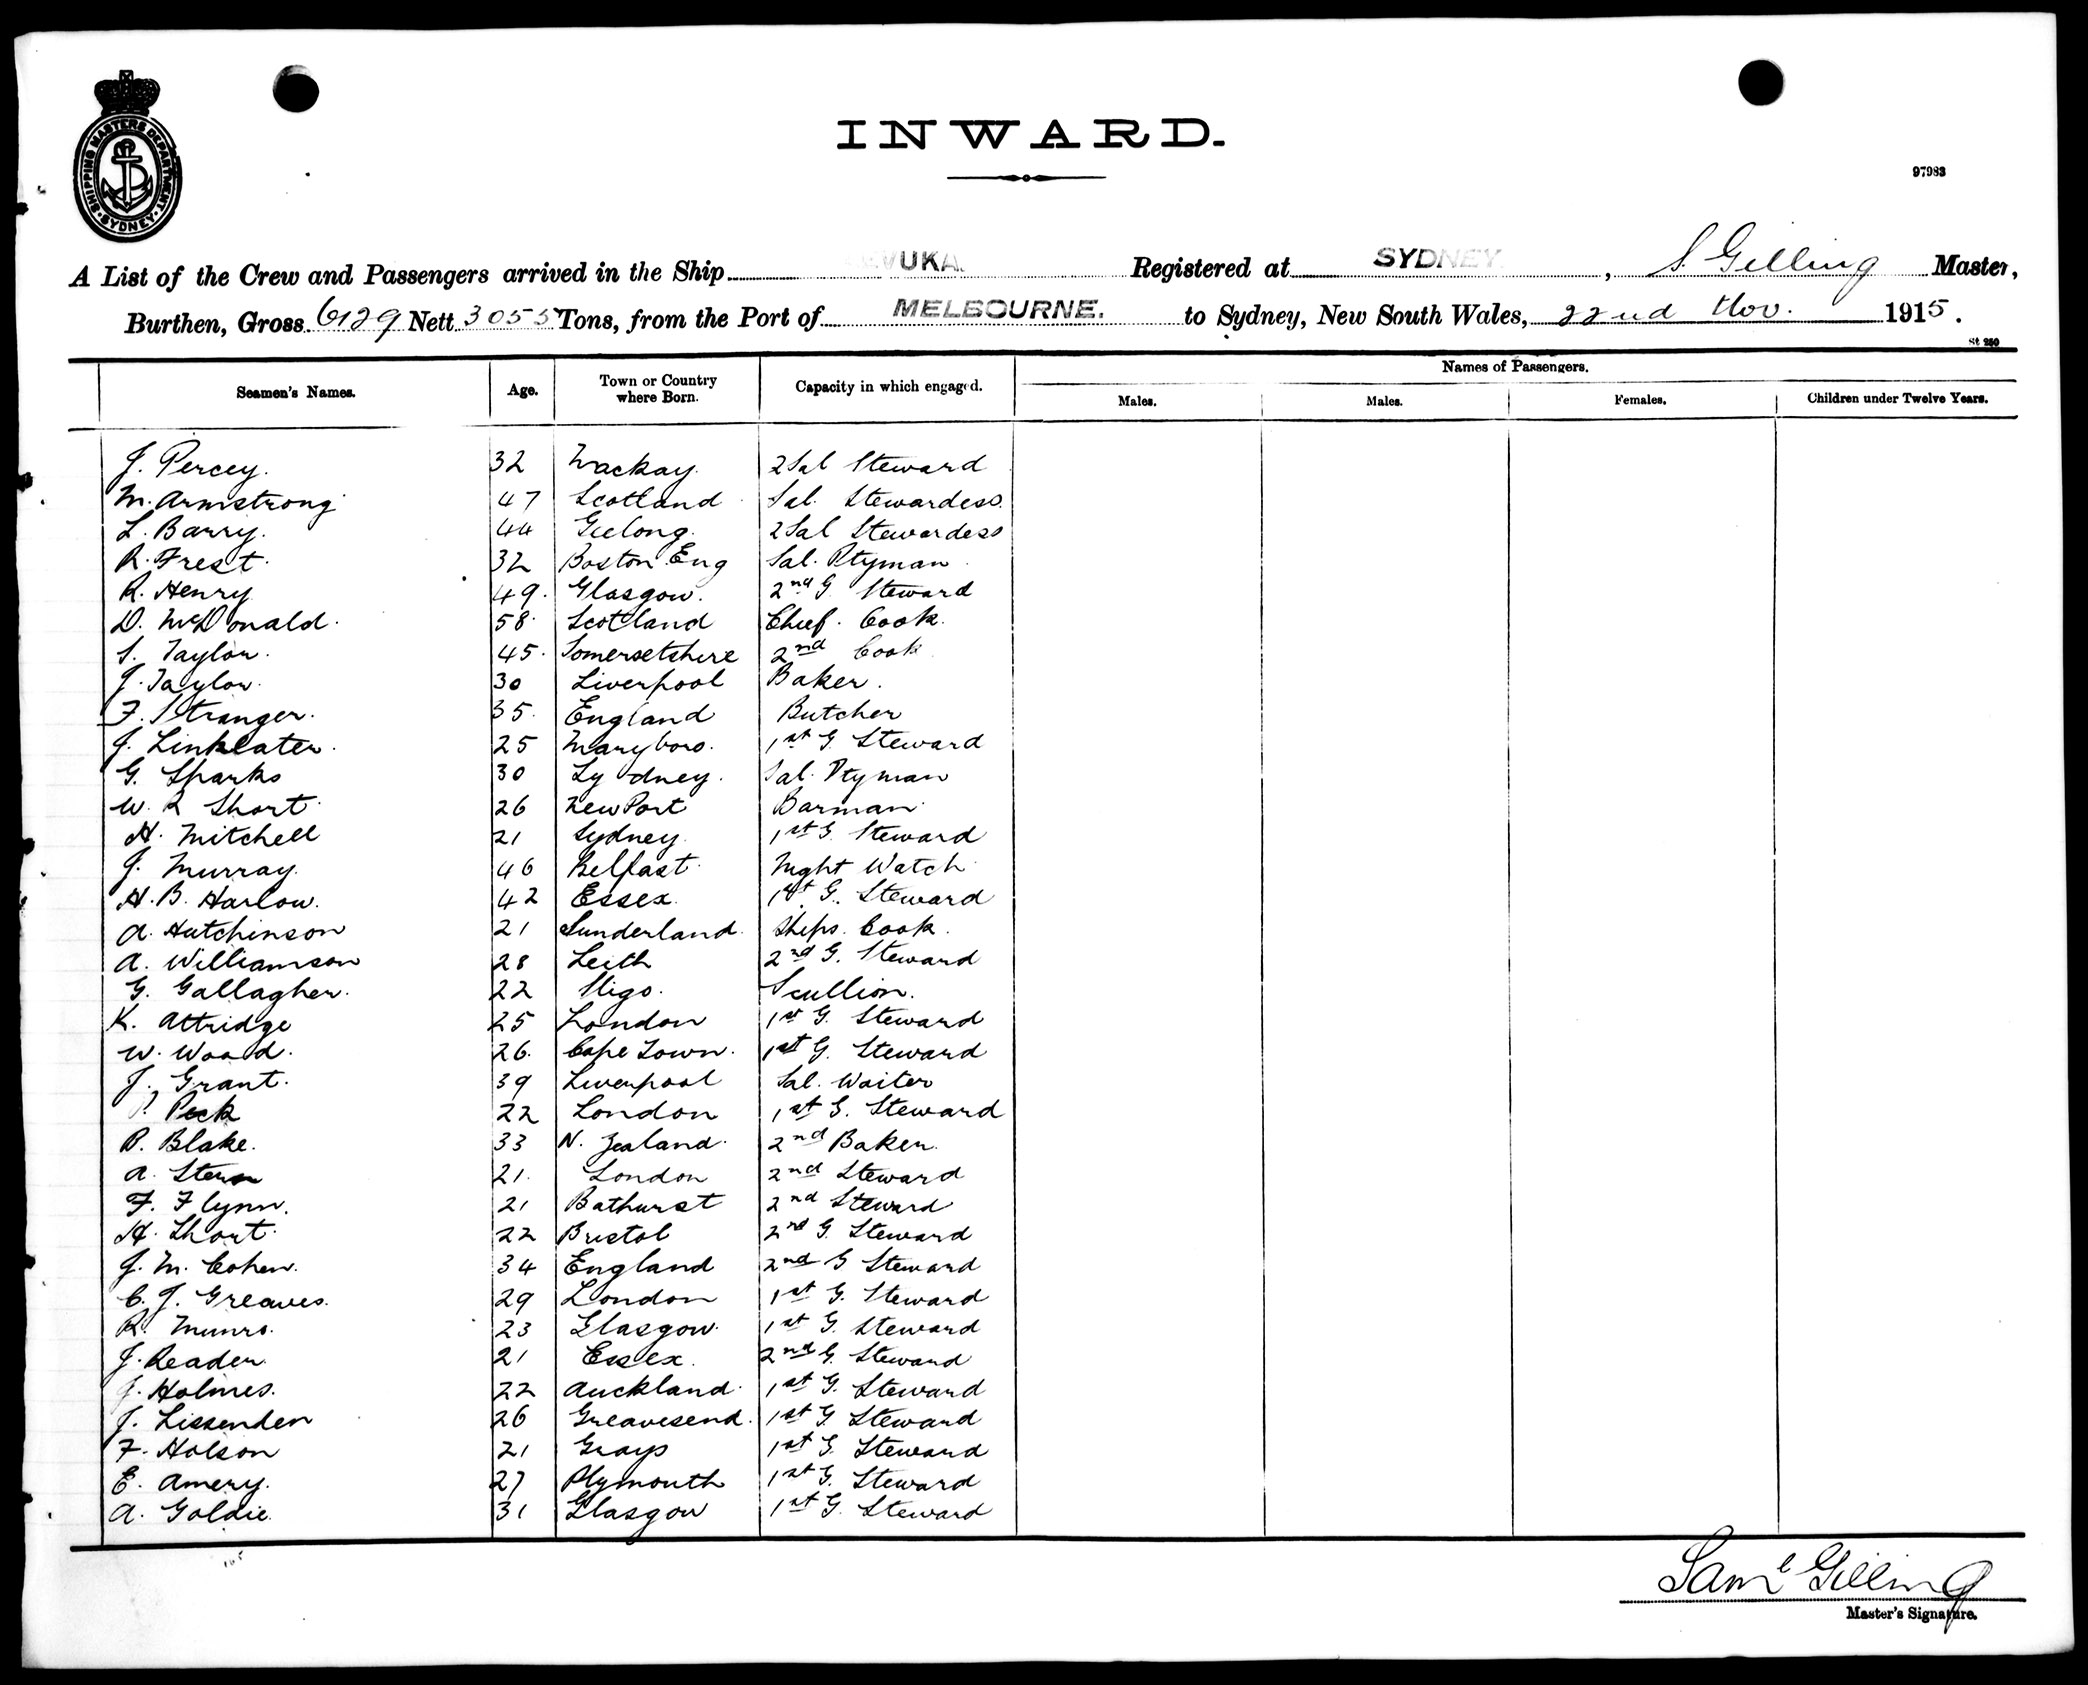 SHIPPING MASTERS DEPARTMENT · SYDNEY ·
INWARD.
97983
A List of the Crew and Passengers arrived in the Ship EVUKA. Registered at SYDNEY, S. Gilling Master,
Burthen, Gross 6129 Nett 3055 Tons, from the Port of MELBOURNE. to Sydney, New South Wales, 22nd Nov. 1915.
St 250
Names of Passengers.
Seamen's Names. Age. Town or Country where Born. Capacity in which engaged. Males. Males. Females. Children under Twelve Years.
J. Percey. 32 Mackay. 2 Sal Steward
M. Armstrong 47 Scotland Sal. Stewardess.
L. Barry. 44 Geelong. 2 Sal Stewardess
R. Frest. 32 Boston Eng Sal. Ptyman
R. Henry 49. Glasgow. 2nd G Steward
D. McDonald. 58. Scotland Chief. Cook.
S. Taylor. 45. Somersetshire 2nd Cook
J. Taylor. 30 Liverpool Baker.
F. Stranger. 35. England Butcher
J. Linklater. 25 Maryboro. 1st G Steward
G. Sparks 30 Sydney. Sal. Ptyman
W. R Short 26 New Port Barman
H. Mitchell 21 Sydney 1st G. Steward
J. Murray. 46 Belfast. Night Watch
H. B. Harlow. 42 Essex. 1st G. Steward
A. Hutchinson 21 Sunderland. Ships. Cook.
A. Williamson 28 Leith 2nd G. Steward
G. Gallagher. 22 Sligo. Scullion.
K. Attridge 25 London 1st G. Steward
W. Wood. 26. Cape Town. 1st G. Steward
J. Grant. 39 Liverpool Sal. Waiter
Peck 22 London 1st G. Steward
B. Blake. 33 N. Zealand. 2nd Baker.
A. Stern 21. London 2nd Steward
F. Flynn. 21 Bathurst 2nd Steward
H. Short. 22 Bristol 2nd G. Steward
J. M. Cohen. 34 England 2nd G Steward
C. J. Greaves. 29 London 1st G. Steward
R. Munro. 23 Glasgow. 1st G. Steward
J. Reader. 21 Essex. 2nd G. Steward
J. Holmes. 22 Auckland. 1st G. Steward
J. Lissenden 26 Greavesend. 1st G Steward
F. Holson 21 Grays 1st G. Steward
E. Amery. 27 Plymouth 1st G. Steward
A. Goldie. 31 Glasgow 1st G. Steward
Saml Gilling
Master's Signature.